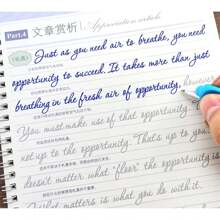 Part.4 文章赏析 Appreciation article
Just as you need air to breathe, you need
opportunity to succeed. It takes more than just
breathing in the fresh air of opportunity, however
You must make use of that opportunity.
not up to the opportunity. That's up to you.
doesn't matter what "floor" the opportunity
matters is what you do with it.